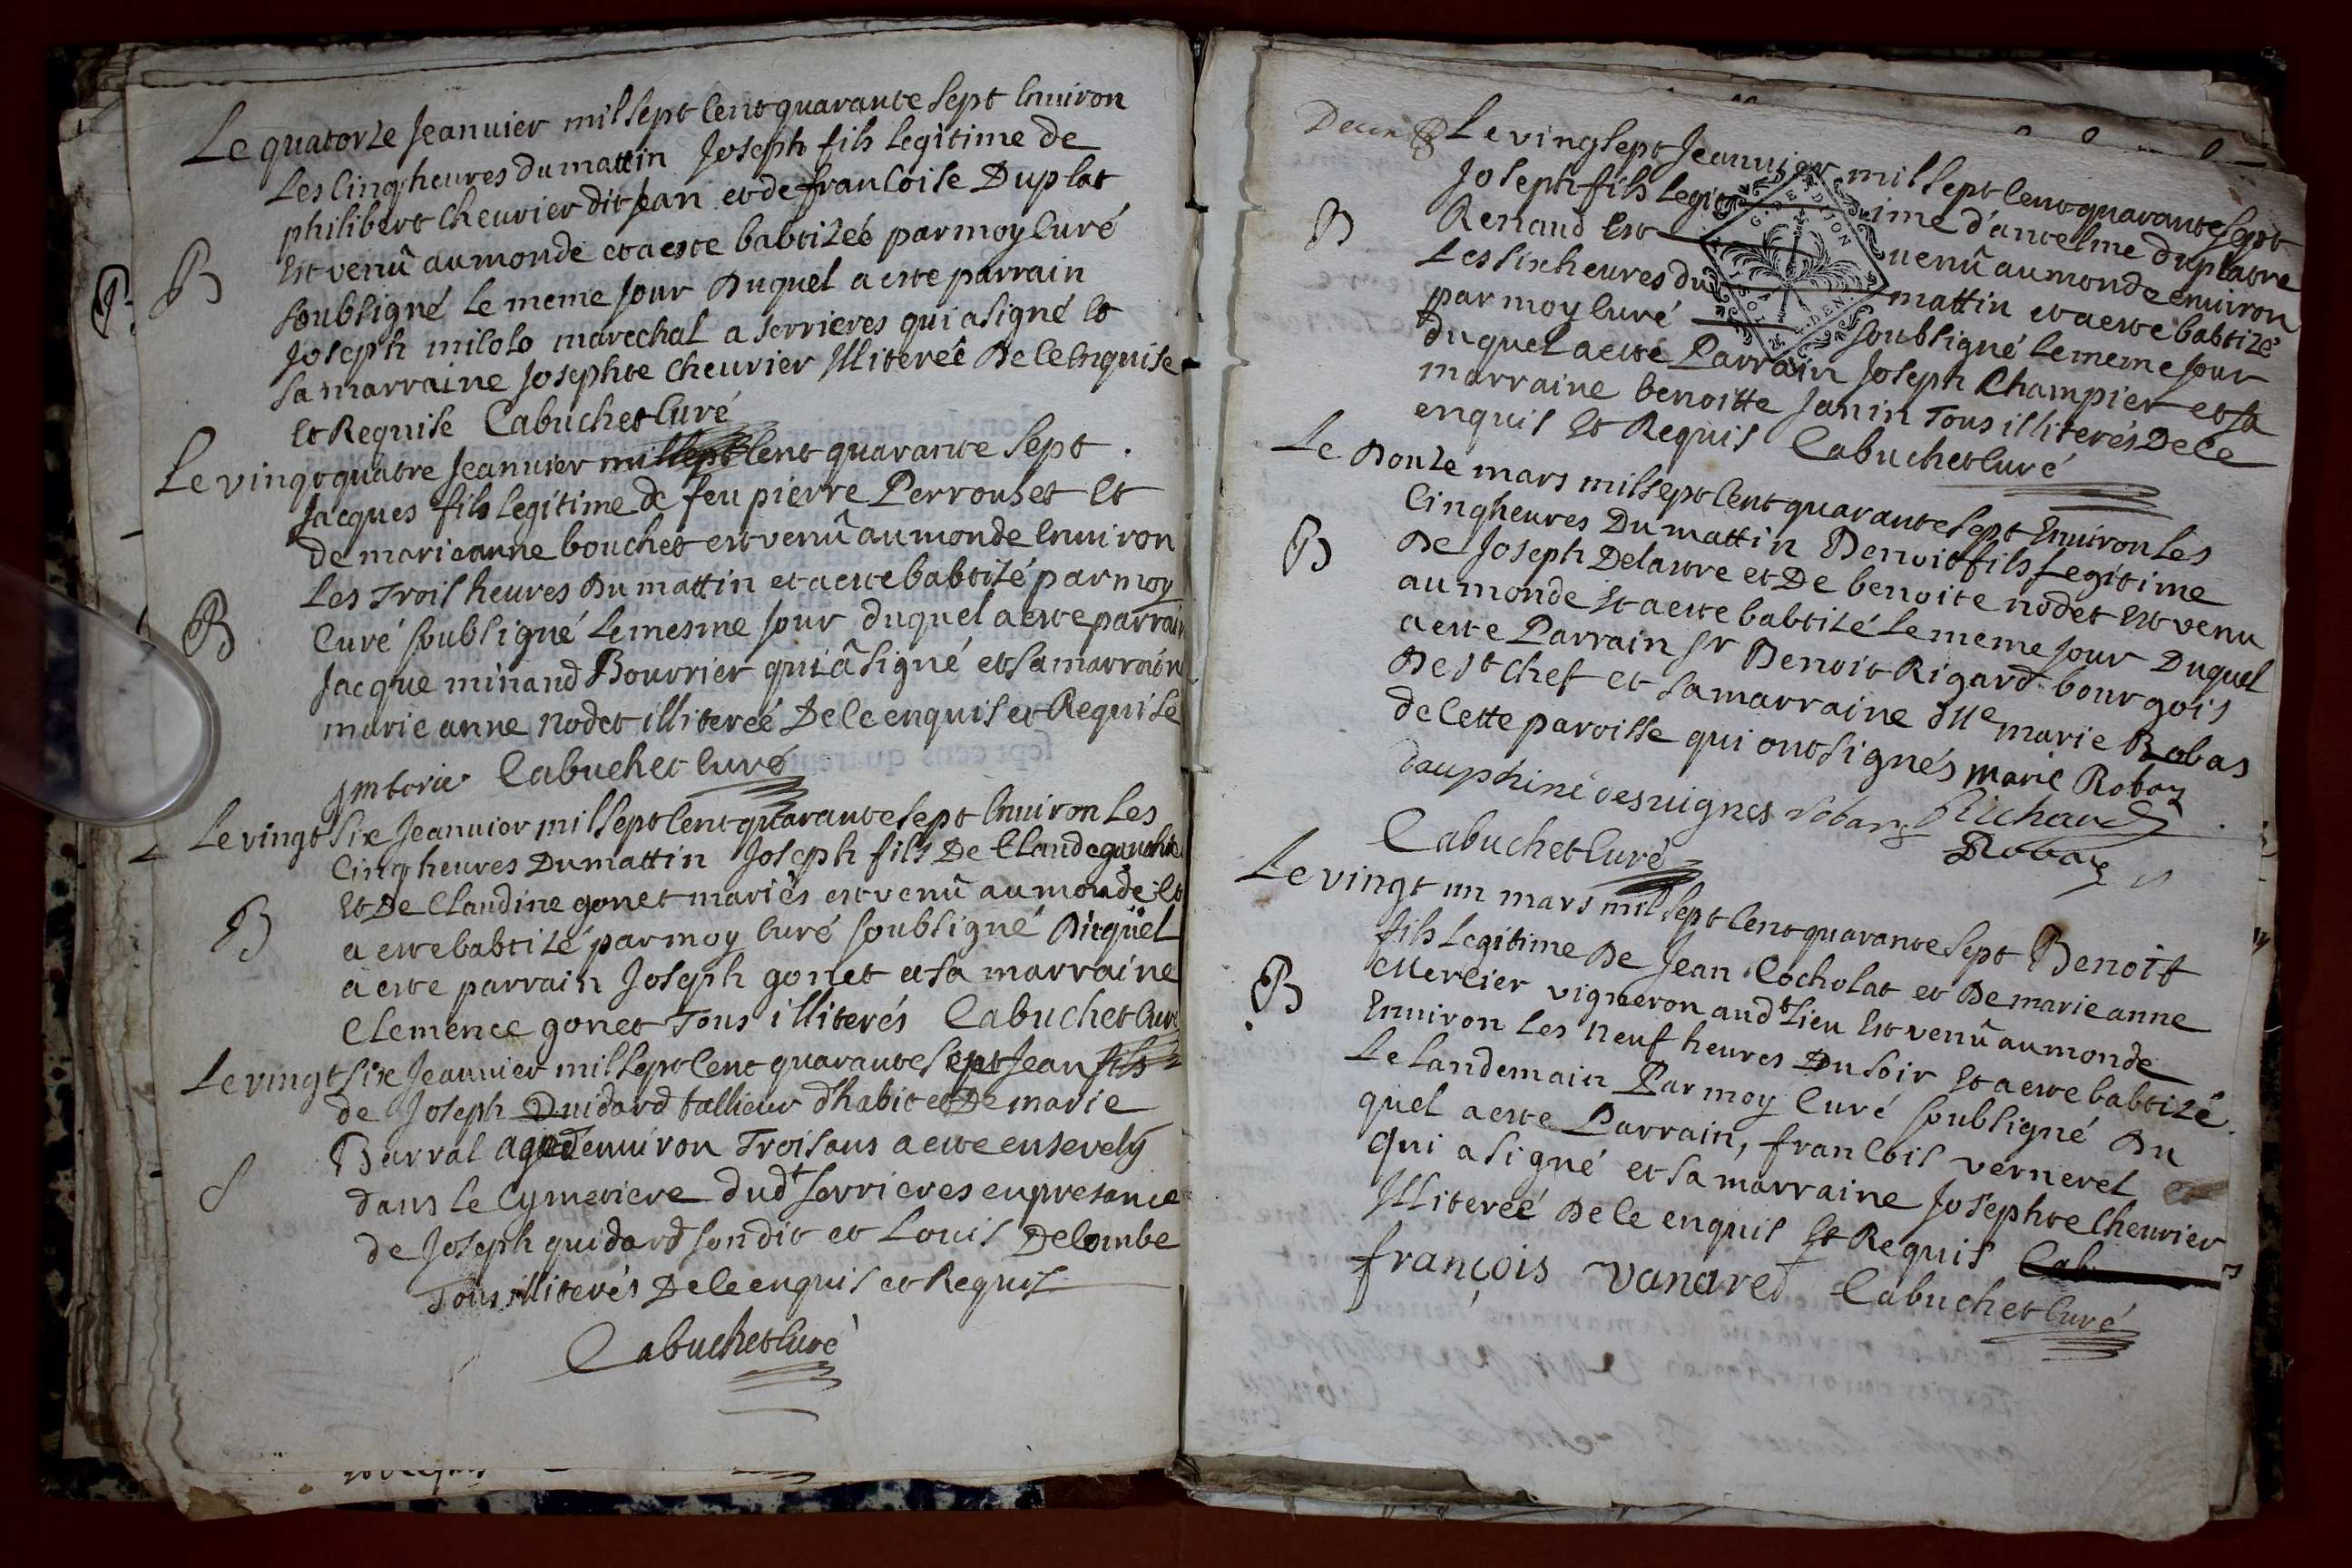 Le quatorze Jeanvier mil sept cent quarante sept environ
Les cinq heures du mattin Joseph fils legitime de
philibert chevrier dit Jean et de francoise Duplat
Est venû au monde et a este babtizéé par moy curé
B
soubsigné le meme jour Duquel a este parrain
Joseph milolo marechal a serrieres qui a signé et
sa marraine Josephte chevrier Illitereé De ce enquise
et Requise Cabuchet curé
Le vingt quatre Jeanvier mil sept cent quarante sept
Jacques fils legitime de feu pierre Perrouset et
de marie anne bouchet est venû au monde environ
Les Trois heures Du mattin et a este babtizé par moy
B
Curé soubsigné le mesme jour duquel a este parrain
Jacque minand Bourrier qui a signé et sa marraine
marie anne nodet illitereé De ce enquis et Requise
Cabuchet curé
Le vingt six Jeanvier mil sept cent quarante sept environ les
Cinq heures Du mattin Joseph fils De Claude
et De Claudine gonet mariès est venû au monde et
B
a este babtizé par moy curé soubsigné Duquel
a este parrain Joseph gonet et sa marraine
Clemence gonet Tous illiterés Cabuchet Curé
Le vingt six Jeanvier mil sept cent quarante sept Jean fils
de Joseph Duidard tallieur d'habit et De marie
Barral agé d'environ Trois ans a este ensevely
S
dans le Cymetiere dudt serrieres en presance
de Joseph guidard son dit et Louis Delombe
Tous illiterés De ce enquis et Requis
Cabuchet Curé
Le vingt sept Jeanvier mil sept cent quarante sept
Joseph fils legitime d'antelme duplatre
B
Renaud Est venû au monde environ
Les six heures du mattin et a este babtizé
par moy curé soubsigné le meme jour
duquel a esté Parrain Joseph Champier et sa
marraine benoitte Janin Tous illiterés De ce
enquis et Requis Cabuchet curé
Le Douze mars mil sept cent quarante sept Environ les
Cinq heures Du mattin Benoit fils Legitime
B
De Joseph Delastre et De benoite nodet est venu
au monde et a este babtizé le meme jour Duquel
a este Parrain sr Benoit Rigard bourgois
De st chef et sa marraine dlle marie Robas
de cette paroisse qui ont signés marie Robaz
dauphine desvignes robaz Richaud
Cabuchet Curé Robaz
Le vingt un mars mil sept cent quarante sept Benoit
fils legitime De Jean Cocholat et De marie anne
B
Mercier vigneron audt Lieu est venû au monde
Environ les neuf heures Du soir et a este babtizé
Le landemain Par moy Curé soubsigné Du
quel a este Parrain, francois verneret et
qui a signé et sa marraine Josephte Chevrier
Illitereé De ce enquis et Requis Cab
françois vanaret Cabuchet Curé
G. DE DIJON